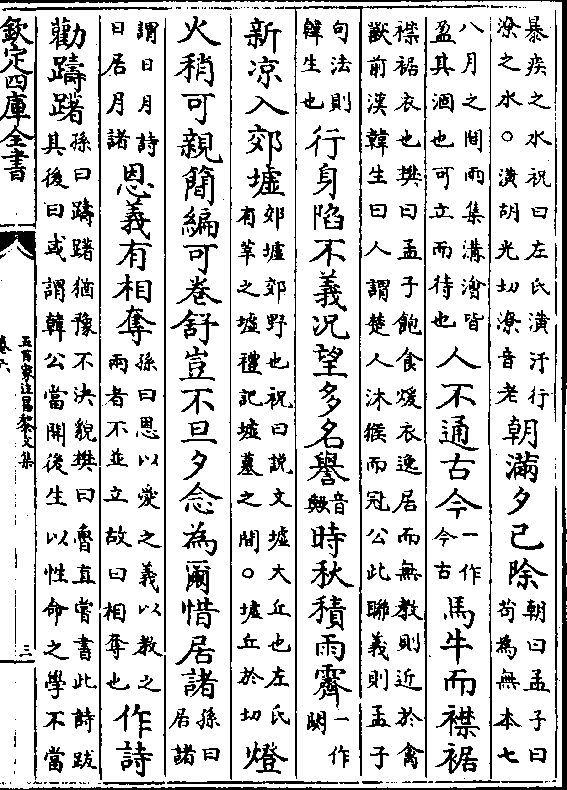 暴疾之水祝曰左氏潢汙行
潦之水○潢胡光切潦音老
朝滿夕已除
朝曰孟子曰
苟為無本七
八月之間雨集溝澮皆
盈其涸也可立而待也
人不通古今
一作
今古
馬牛而襟裾
襟裾衣也樊曰孟子飽食煖衣逸居而無教則近於禽
獸前漢韓生曰人謂楚人沐猴而冠公此聯義則孟子
句法則
韓生也
行身陷不義况望多名譽
音
歟
時秋積雨霽
一作
闕
新凉入郊墟
郊墟郊野也祝曰説文墟大丘也左氏
有莘之墟禮記墟墓之間○墟丘於切
燈
火稍可親簡編可卷舒豈不旦夕念為爾惜居諸
孫曰
居諸
謂日月詩
日居月諸
恩義有相奪
孫曰恩以愛之義以教之
兩者不並立故曰相奪也
作詩
勸躊躇
孫曰躊躇猶豫不決貌樊曰魯直嘗書此詩跋
其後曰或謂韓公當開後生以性命之學不當
欽定四庫全書
五百家注昌黎文集
卷六
三